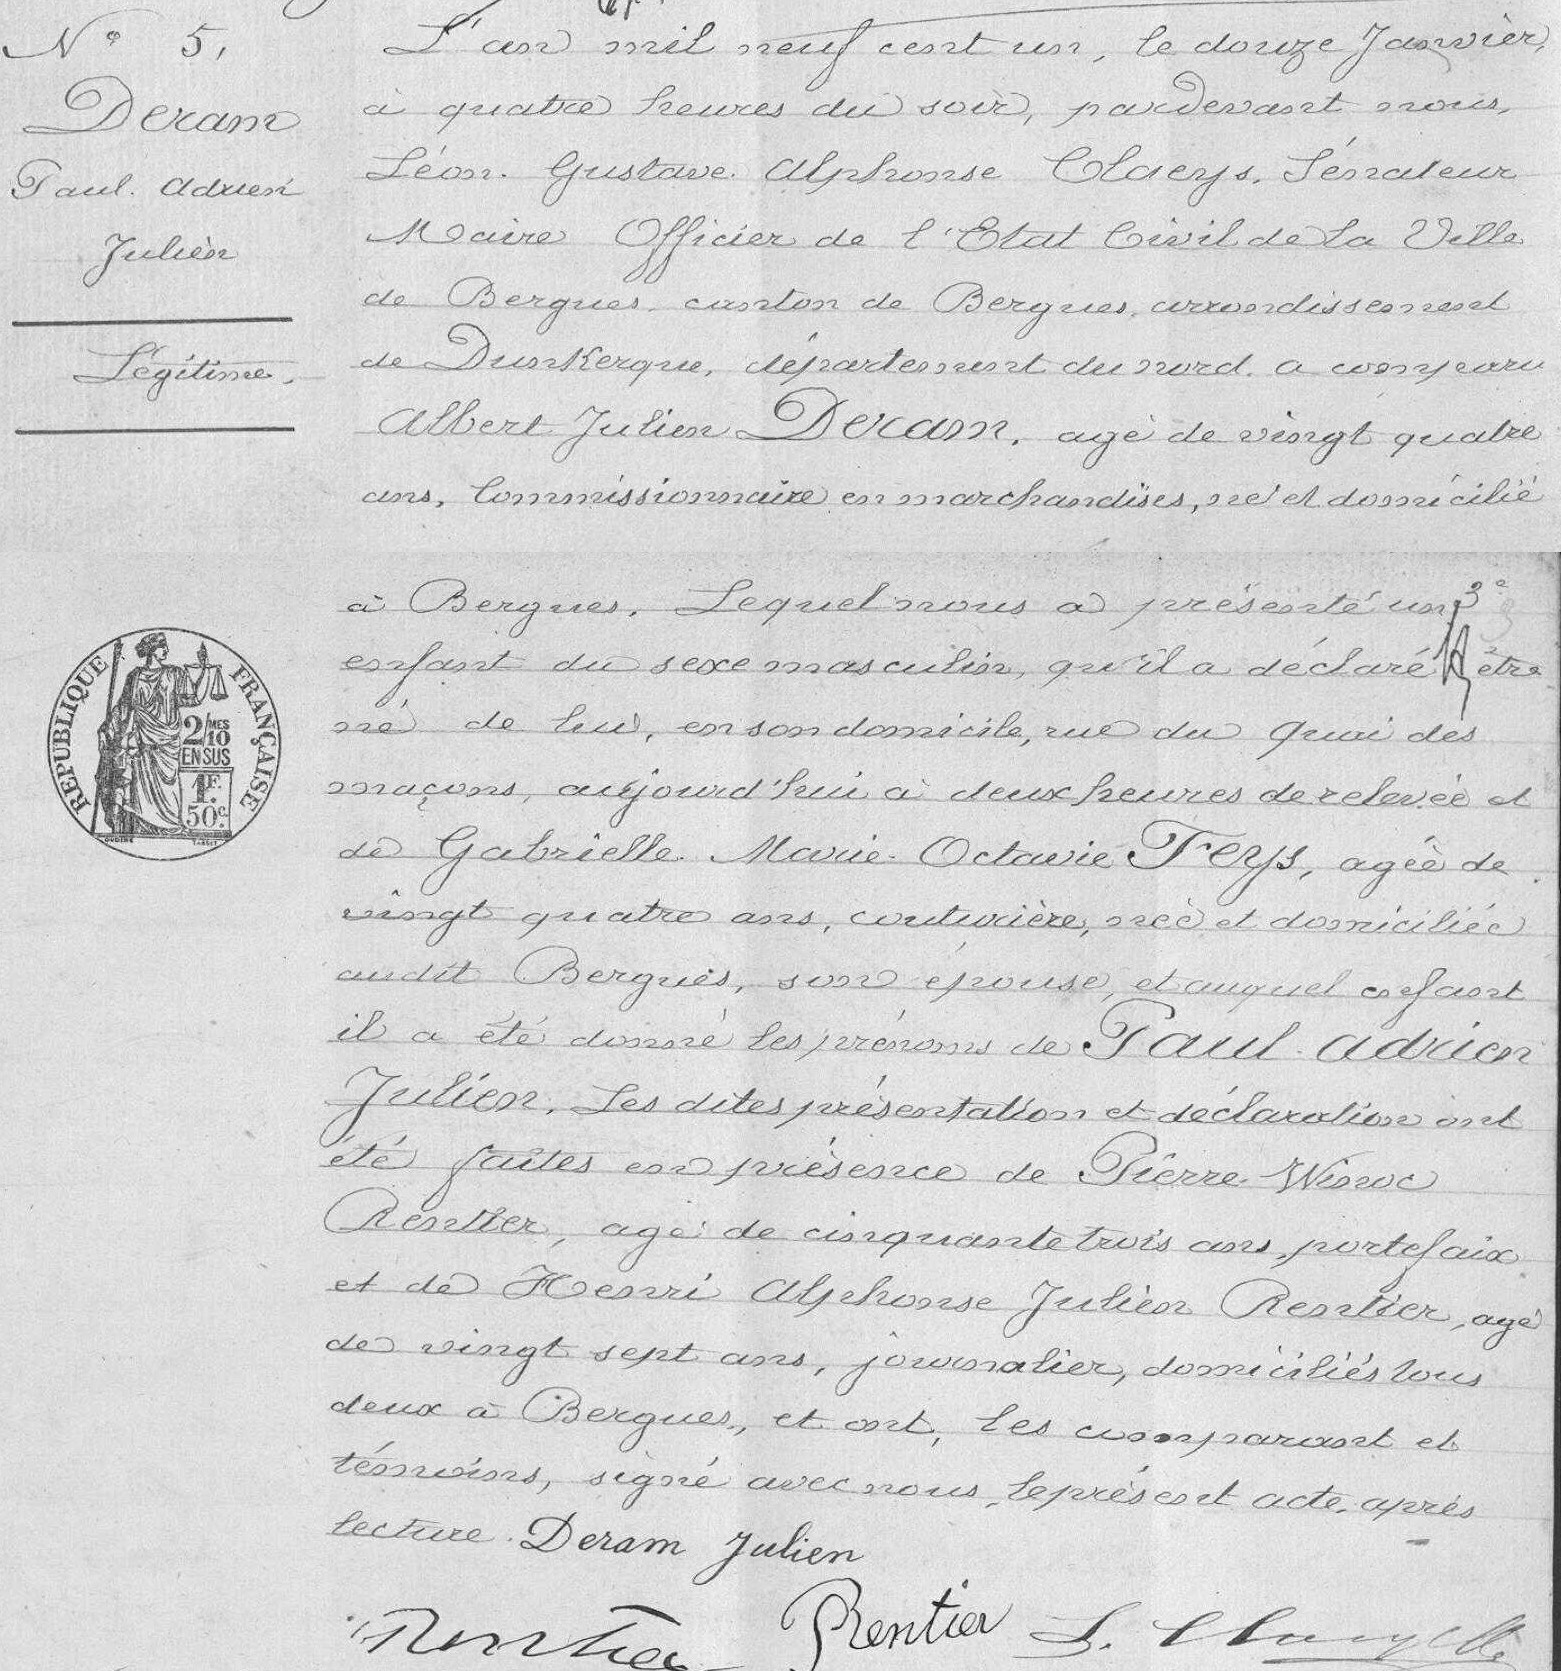 N° 5,
Deram
Paul. Adrien
Julien
Légitime.
L'an mil neuf cent un, le douze Janvier,
à quatre heures du soir, pardevant nous,
Léon. Gustave. Alphonse Claeys, Sénateur
Maire Officier de l'Etat Civil de la Ville
de Bergues, canton de Bergues, arrondissement
de Dunkerque, département du nord. a comparu
Albert Julien Deram, agé de vingt quatre
ans, Commissionnaire en marchandises, né et domicilié
à Bergues. Lequel nous a présenté un
3e
enfant du sexe masculin, qu'il a déclaré être
né de lui, en son domicile, rue du Quai des
maçons, aujourd'hui à deux heures de relevée et
de Gabrielle. Marie. Octavie Feys, agée de
vingt quatre ans, couturière, née et domiciliée
audit Bergues, son épouse, et auquel enfant
il a été donné les prénoms de Paul. Adrien
Julien. Les dites présentation et déclaration ont
été faites en présence de Pierre Winoc
Rentier, agé de cinquante trois ans, portefaix
et de Henri Alphonse Julien Rentier, agé
de vingt sept ans, journalier, domiciliés tous
deux à Bergues, et ont, les comparant et
témoins, signé avec nous, le présent acte, après
lecture. Deram Julien
Rentier Rentier L. Claeys
REPUBLIQUE FRANÇAISE
2/10 MES
EN SUS
1F.
50c.